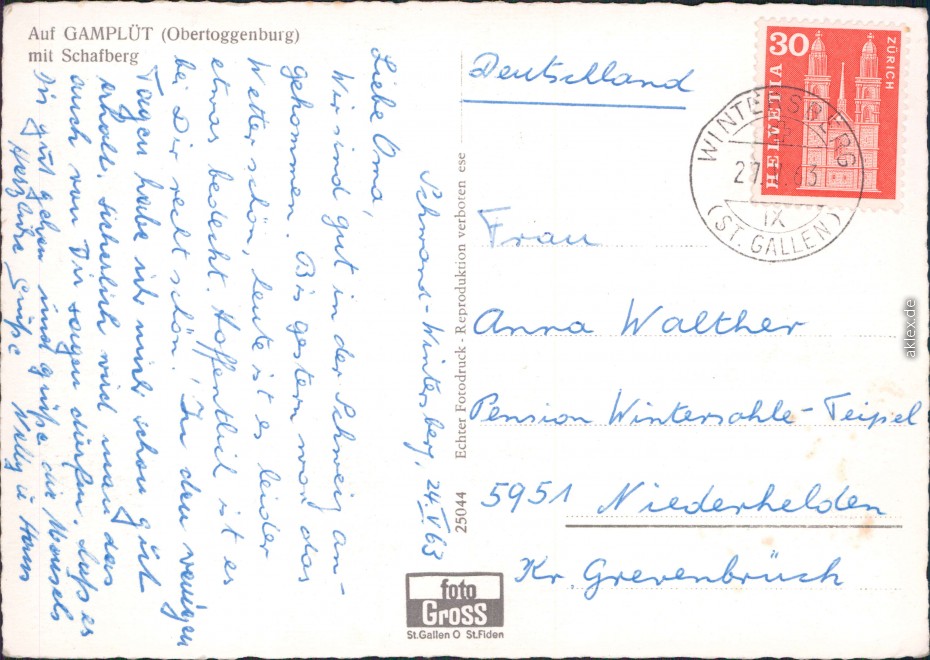 Auf GAMPLÜT (Obertoggenburg)
mit Schafberg
Schwand-Wintersberg, 24.V.63
Liebe Oma,
Wir sind gut in der Schweiz an-
gekommen. Bis gestern war das
Wetter schön, heute ist es leider
etwas bedeckt. Hoffentlich ist es
bei Dir recht schön. In den wenigen
Tagen habe ich mich schon gut
erholt. Sicherlich wird man das
auch von Dir sagen dürfen. Laß es
Dir gut gehen und grüße die
Herzliche Grüße Willy u. Hans
25044 Echter Fotodruck - Reproduktion verboten ese
foto
Gross
St.Gallen O St.Fiden
Deutschland
Frau
Anna Walther
Pension Wintersohle-Teipel
5951 Niederhelden
Kr. Grevenbrück
30
HELVETIA
ZÜRICH
WINTERSBERG
27. 63
IX
(ST. GALLEN)
aklex.de